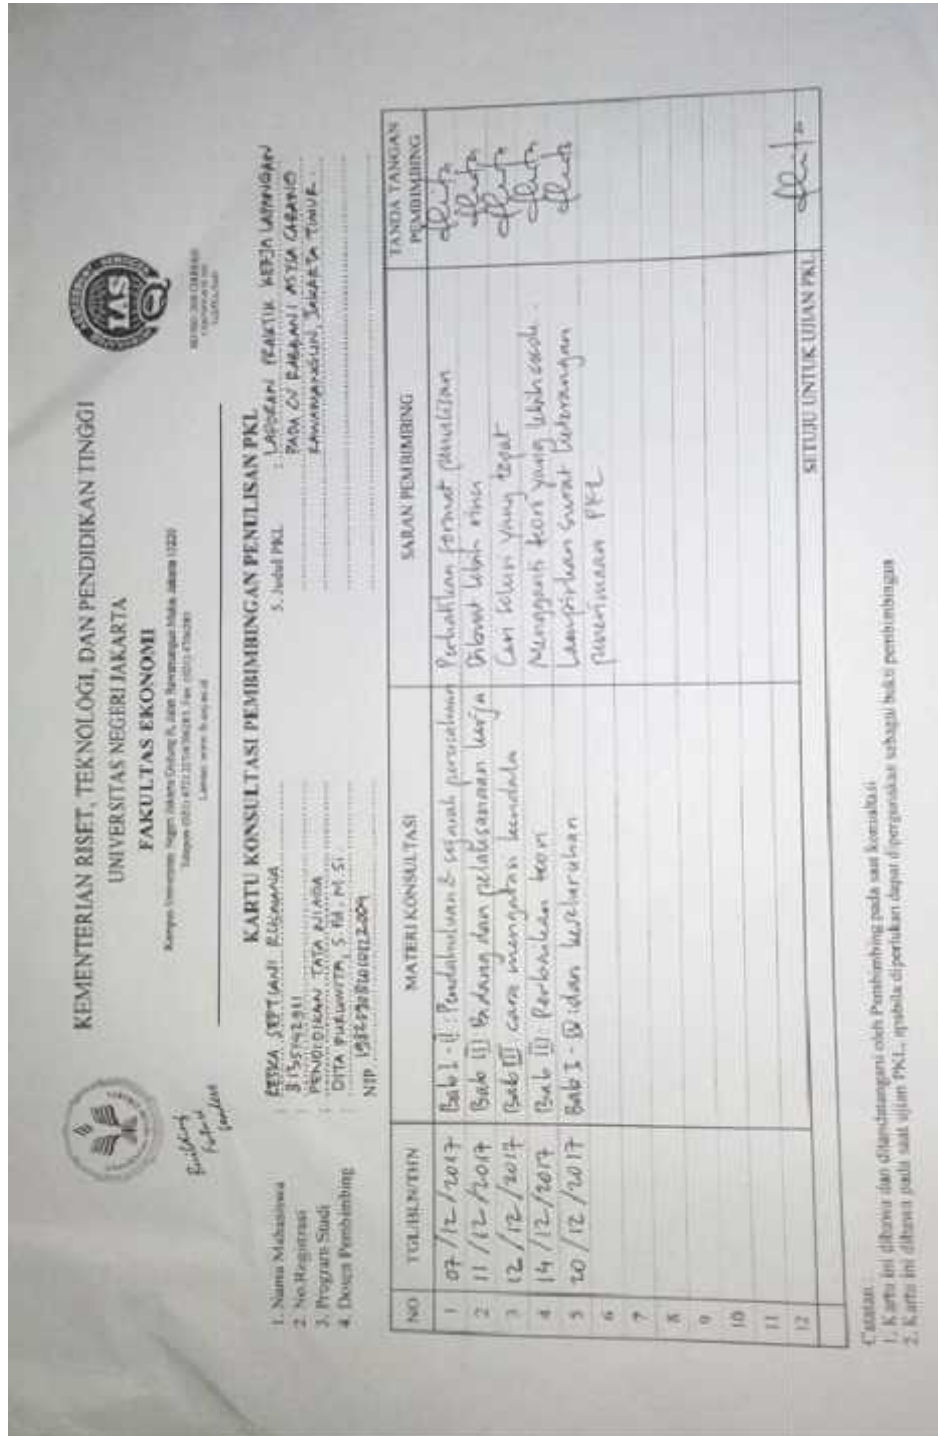 KEMENTERIAN RISET, TEKNOLOGI, DAN PENDIDIKAN TINGGI
UNIVERSITAS NEGERI JAKARTA
FAKULTAS EKONOMI
Kampus Universitas Negeri Jakarta Gedung R, Jalan Rawamangun Muka, Jakarta 13220
Building
Future
Leaders
IAS
KARTU KONSULTASI PEMBIMBINGAN PENULISAN PKL
1. Nama Mahasiswa : RESKA SEPTIANI RUSMANIA
2. No.Registrasi : 8135142911
3. Program Studi : PENDIDIKAN TATA NIAGA
4. Dosen Pembimbing : DITA PURUWITA, S.Pd, M.Si
NIP.
5. Judul PKL : LAPORAN PRAKTIK KERJA LAPANGAN
PADA CV RABBANI ASYSA CABANG
RAWAMANGUN, JAKARTA TIMUR.
NO TGL/BLN/THN MATERI KONSULTASI SARAN PEMBIMBING TANDA TANGAN PEMBIMBING
1 07/12/2017 Bab I - II : Pendahuluan & sejarah perusahaan Perhatikan format penulisan
2 11/12/2017 Bab III Bidang dan pelaksanaan kerja Dibuat lebih rinci
3 12/12/2017 Bab III cara mengatasi kendala Cari solusi yang tepat
4 14/12/2017 Bab III Perbaikan teori Mengganti teori yang lebih cocok.
5 20/12/2017 Bab I - IV dan keseluruhan Lampirkan surat keterangan
6 penerimaan PKL
7
8
9
10
11
12
SETUJU UNTUK UJIAN PKL
Catatan
1. Kartu ini dibawa dan ditandatangani oleh Pembimbing pada saat konsultasi
2. Kartu ini dibawa pada saat ujian PKL, apabila diperlukan dapat dipergunakan sebagai bukti pembimbingan